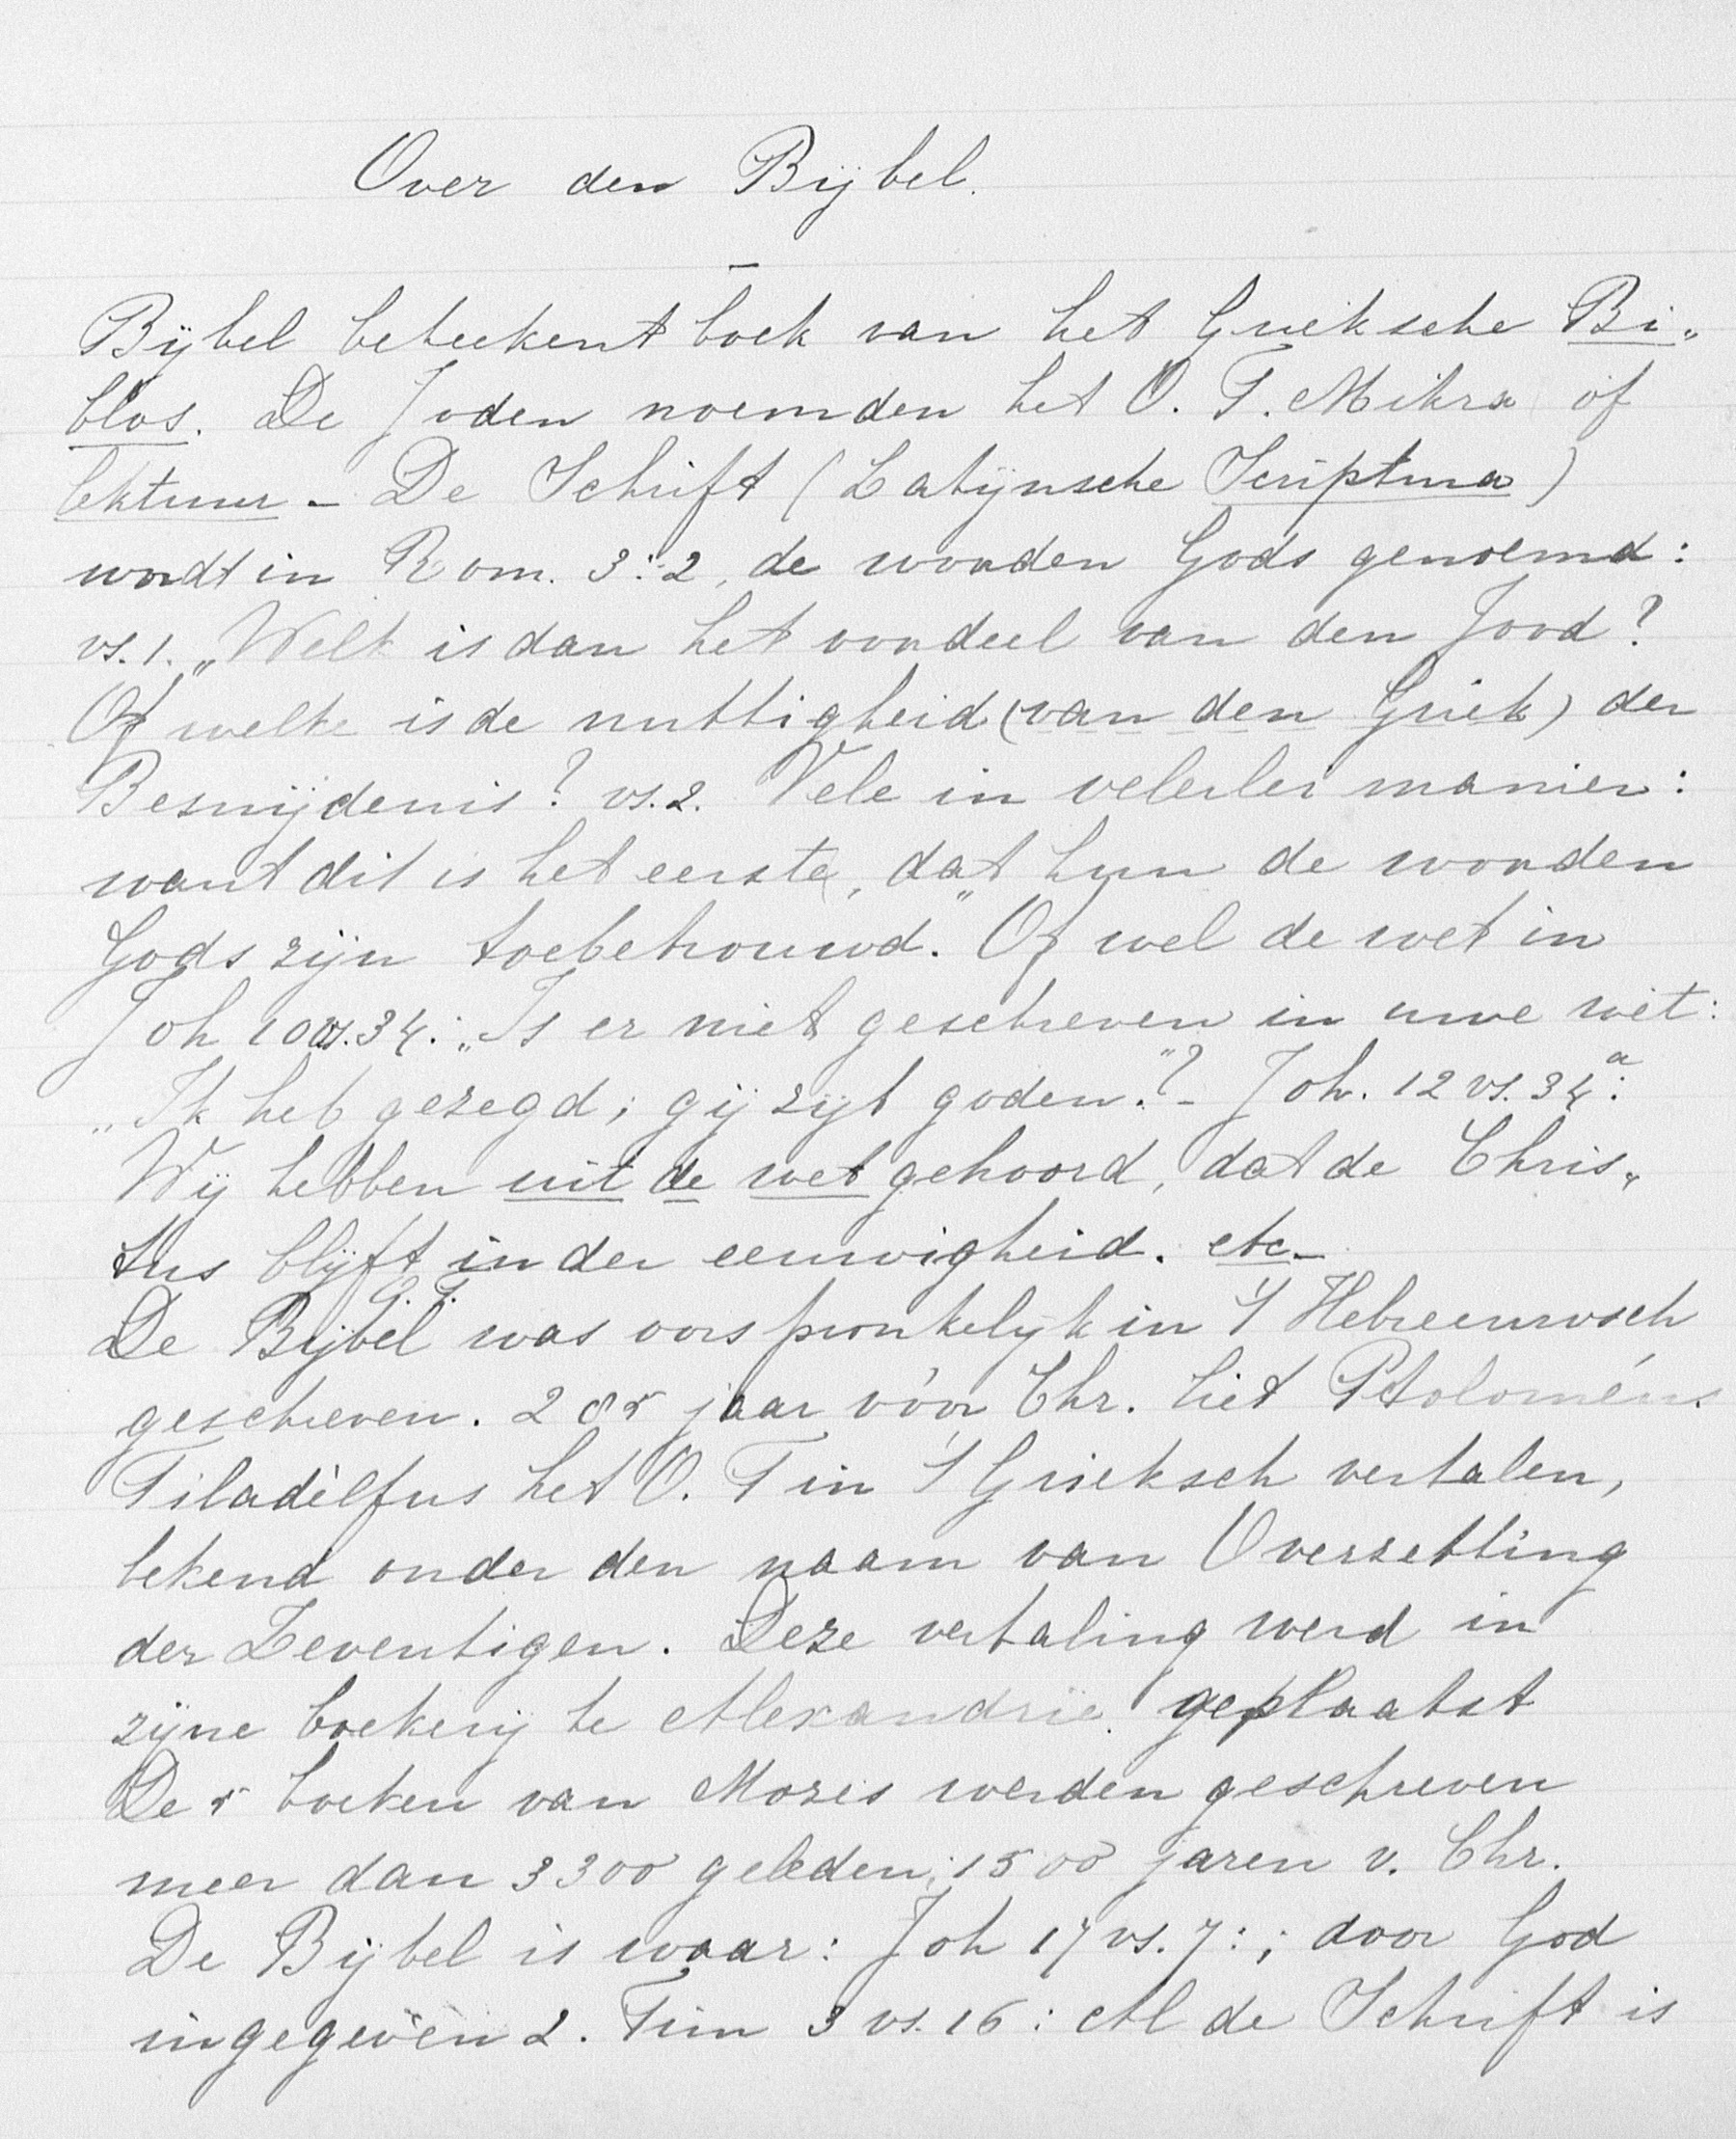 Over den Bijbel.
Bijbel beteekent boek van het Grieksche Bi„
blos. De Joden noemden het O. T. Mikra of
lektuur - De Schrift (Latijnsche Scriptura)
wordt in Rom. 3:2, de woorden Gods genoemd:
vs. 1. „Welk is dan het voordeel van den Jood?
Of welke is de nuttigheid (van den Griek) der
Besnijdenis? vs. 2. Vele in velerlei manier:
want dit is het eerste, dat hun de woorden
Gods zijn toebetrouwd." Of wel de wet in
Joh 10 vs. 34: „Is er niet geschreven in uwe wet:
„Ik heb gezegd; gij zijt goden."? - Joh. 12 vs. 34a:
Wij hebben uit de wet gehoord, dat de Chris„
tus blijft in der eeuwigheid. etc-
De Bijbel O.T. was oorspronkelijk in 't Hebreeuwsch
geschreven. 285 jaar vóór Chr. liet Ptoloméus
Filadèlfus het O. T in 't Grieksch vertalen,
bekend onder den naam van Overzetting
der Zeventigen. Deze vertaling werd in
zijne boekerij te Alexandrië geplaatst
De 5 boeken van Mozes werden geschreven
meer dan 3300 geleden; 1500 jaren v. Chr.
De Bijbel is waar: Joh 17 vs. 7:; door God
ingegeven 2. Tim 3 vs. 16: Al de Schrift is